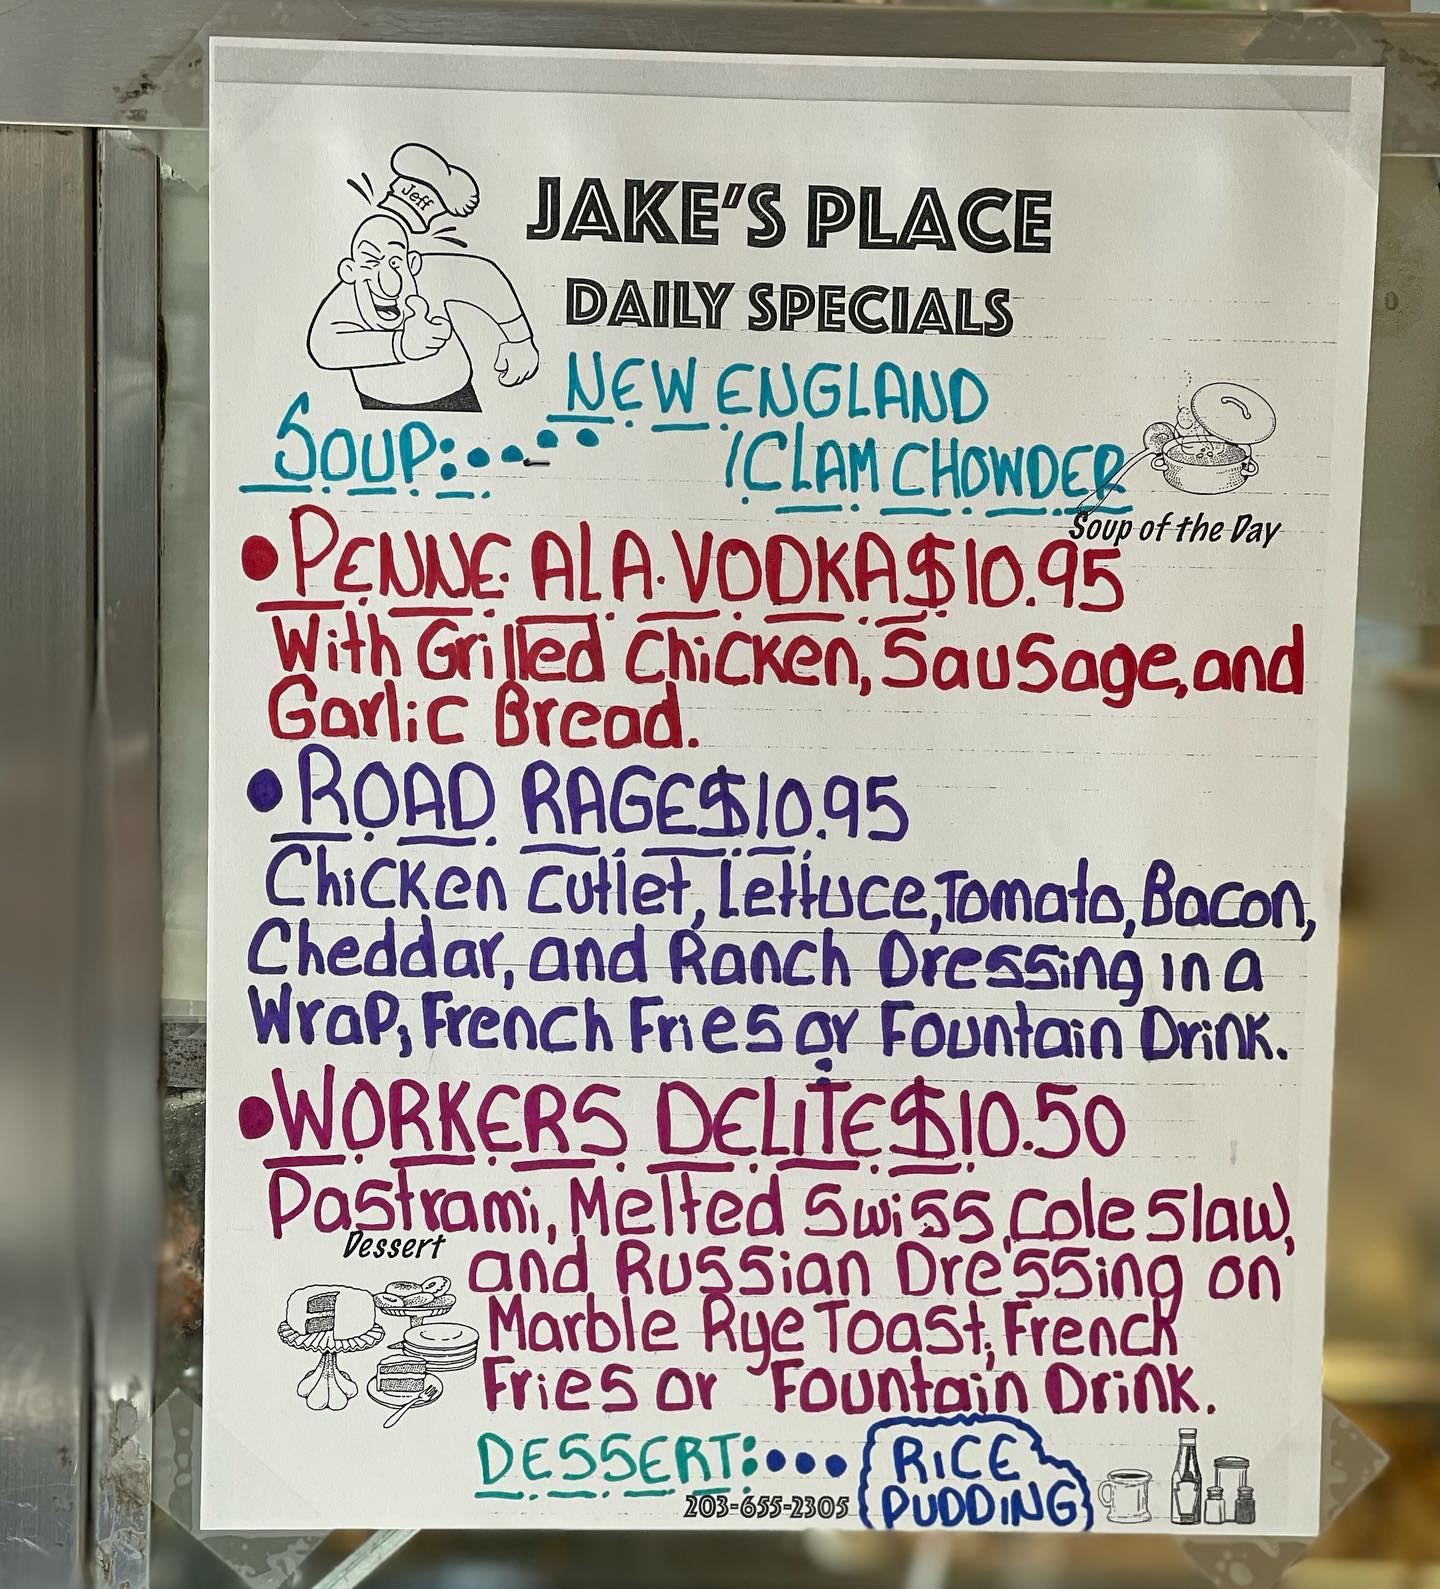 Jeff
JAKE'S PLACE
DAILY SPECIALS
NEW ENGLAND
SOUP:.....
CLAM CHOWDER
Soup of the Day
•PENNE ALA VODKA $10.95
With Grilled Chicken, Sausage, and
Garlic Bread.
•ROAD RAGE $10.95
Chicken Cutlet, Lettuce, Tomato, Bacon,
Cheddar, and Ranch Dressing in a
Wrap, French Fries or Fountain Drink.
•WORKERS DELITE $10.50
Pastrami, Melted Swiss, Cole Slaw,
Dessert
and Russian Dressing on
Marble Rye Toast, French
Fries or Fountain Drink.
DESSERT:... RICE
PUDDING
203-655-2305